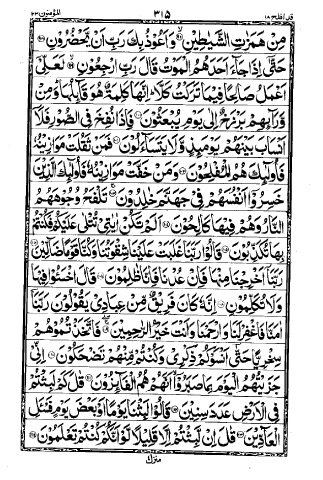 قد افلح ١٨ ٣١٥ المؤمنون ٢٣
مِنْ هَمَزٰتِ الشَّيٰطِيْنِ ﴿٩٧﴾ وَاَعُوْذُ بِكَ رَبِّ اَنْ يَّحْضُرُوْنِ ﴿٩٨﴾
حَتّٰۤى اِذَا جَآءَ اَحَدَهُمُ الْمَوْتُ قَالَ رَبِّ ارْجِعُوْنِ ﴿٩٩﴾ لَعَلِّيْۤ
اَعْمَلُ صَالِحًا فِيْمَا تَرَكْتُ كَلَّا اِنَّهَا كَلِمَةٌ هُوَ قَآئِلُهَا وَمِنْ
وَّرَآئِهِمْ بَرْزَخٌ اِلٰى يَوْمِ يُبْعَثُوْنَ ﴿١٠٠﴾ فَاِذَا نُفِخَ فِي الصُّوْرِ فَلَاۤ
اَنْسَابَ بَيْنَهُمْ يَوْمَئِذٍ وَّلَا يَتَسَآءَلُوْنَ ﴿١٠١﴾ فَمَنْ ثَقُلَتْ مَوَازِيْنُهٗ
فَاُولٰٓئِكَ هُمُ الْمُفْلِحُوْنَ ﴿١٠٢﴾ وَمَنْ خَفَّتْ مَوَازِيْنُهٗ فَاُولٰٓئِكَ الَّذِيْنَ
خَسِرُوْۤا اَنْفُسَهُمْ فِيْ جَهَنَّمَ خٰلِدُوْنَ ﴿١٠٣﴾ تَلْفَحُ وُجُوْهَهُمُ
النَّارُ وَهُمْ فِيْهَا كَالِحُوْنَ ﴿١٠٤﴾ اَلَمْ تَكُنْ اٰيٰتِيْ تُتْلٰى عَلَيْكُمْ فَكُنْتُمْ
بِهَا تُكَذِّبُوْنَ ﴿١٠٥﴾ قَالُوْا رَبَّنَا غَلَبَتْ عَلَيْنَا شِقْوَتُنَا وَكُنَّا قَوْمًا ضَآلِّيْنَ ﴿١٠٦﴾
رَبَّنَاۤ اَخْرِجْنَا مِنْهَا فَاِنْ عُدْنَا فَاِنَّا ظٰلِمُوْنَ ﴿١٠٧﴾ قَالَ اخْسَـُٔوْا فِيْهَا
وَلَا تُكَلِّمُوْنِ ﴿١٠٨﴾ اِنَّهٗ كَانَ فَرِيْقٌ مِّنْ عِبَادِيْ يَقُوْلُوْنَ رَبَّنَاۤ
اٰمَنَّا فَاغْفِرْ لَنَا وَارْحَمْنَا وَاَنْتَ خَيْرُ الرّٰحِمِيْنَ ﴿١٠٩﴾ فَاتَّخَذْتُمُوْهُمْ
سِخْرِيًّا حَتّٰۤى اَنْسَوْكُمْ ذِكْرِيْ وَكُنْتُمْ مِّنْهُمْ تَضْحَكُوْنَ ﴿١١٠﴾ اِنِّيْ
جَزَيْتُهُمُ الْيَوْمَ بِمَا صَبَرُوْۤا اَنَّهُمْ هُمُ الْفَآئِزُوْنَ ﴿١١١﴾ قٰلَ كَمْ لَبِثْتُمْ
فِي الْاَرْضِ عَدَدَ سِنِيْنَ ﴿١١٢﴾ قَالُوْا لَبِثْنَا يَوْمًا اَوْ بَعْضَ يَوْمٍ فَسْـَٔلِ
الْعَآدِّيْنَ ﴿١١٣﴾ قٰلَ اِنْ لَّبِثْتُمْ اِلَّا قَلِيْلًا لَّوْ اَنَّكُمْ كُنْتُمْ تَعْلَمُوْنَ ﴿١١٤﴾
منزل